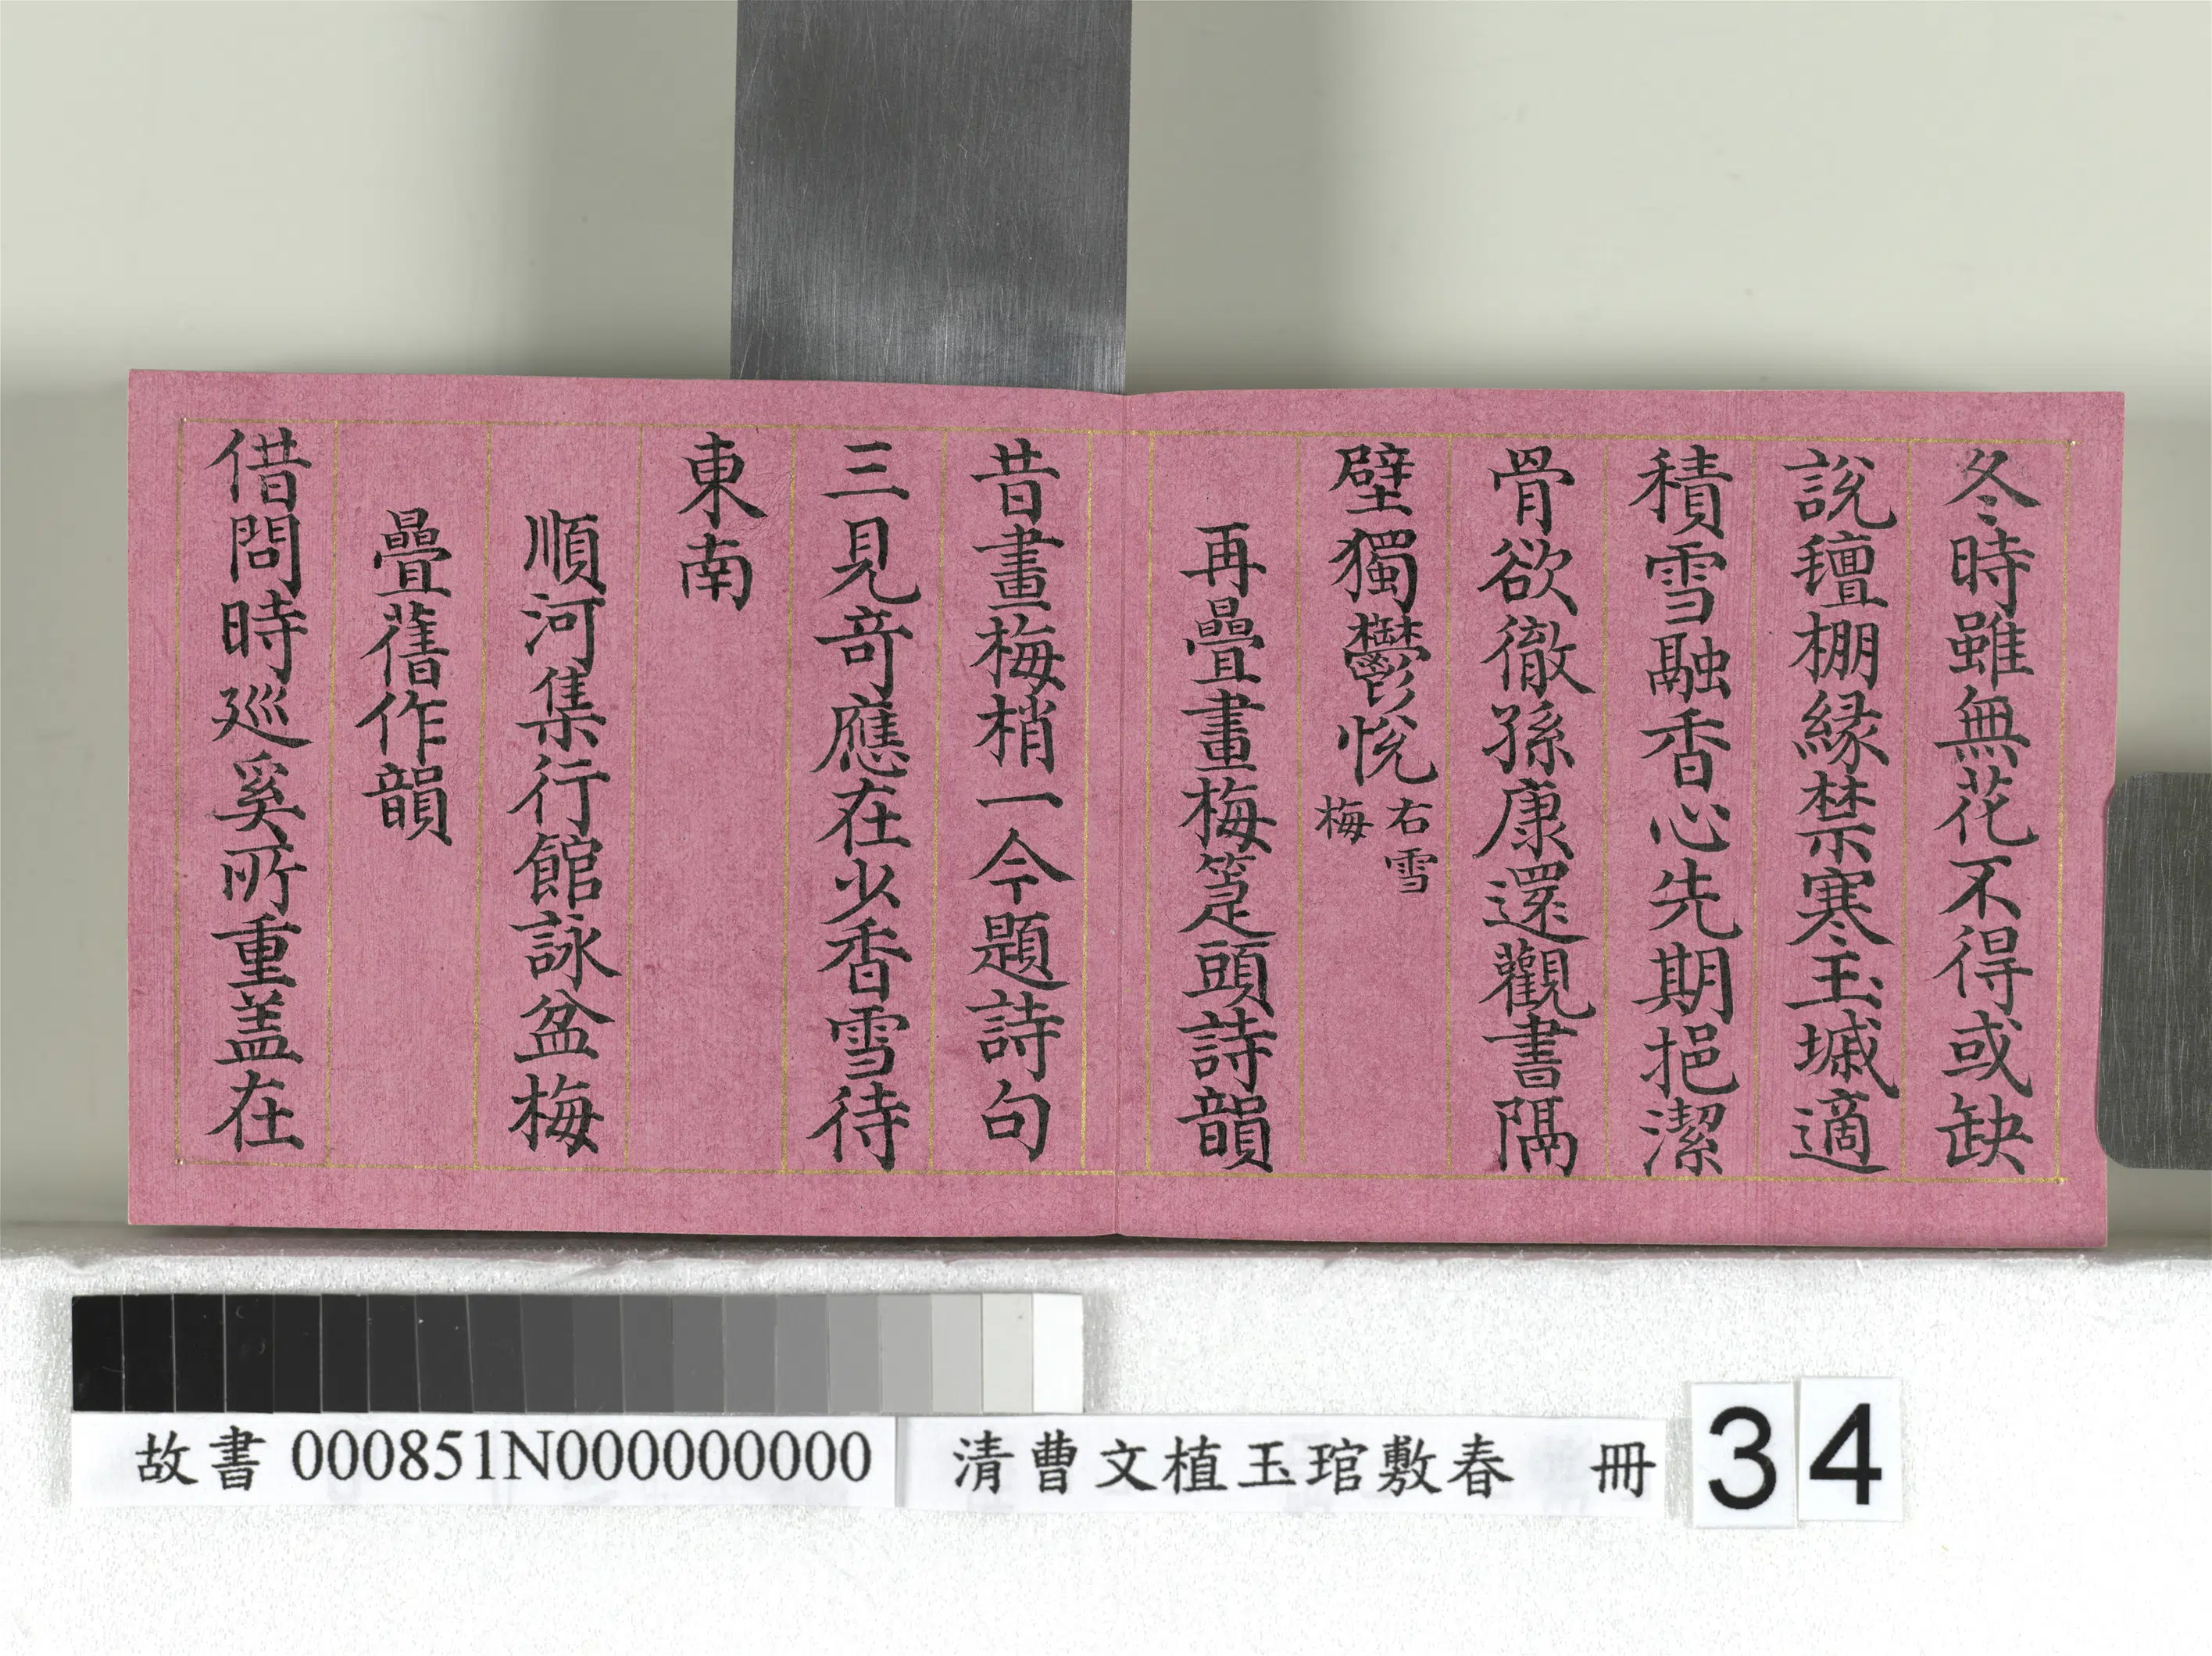 冬時雖無花不得或缺
說氊棚緣禁寒玉墄適
積雪融香心先期挹潔
骨欲徹孫康還觀書隔
壁獨鬱悅右雪
梅
再疊畫梅箑頭詩韻
昔畫梅梢一今題詩句
三見奇應在少香雪待
東南
順河集行館詠盆梅
疊舊作韻
借問時廵奚所重盖在
故書 000851N000000000
清曹文植玉琯敷春 冊
34